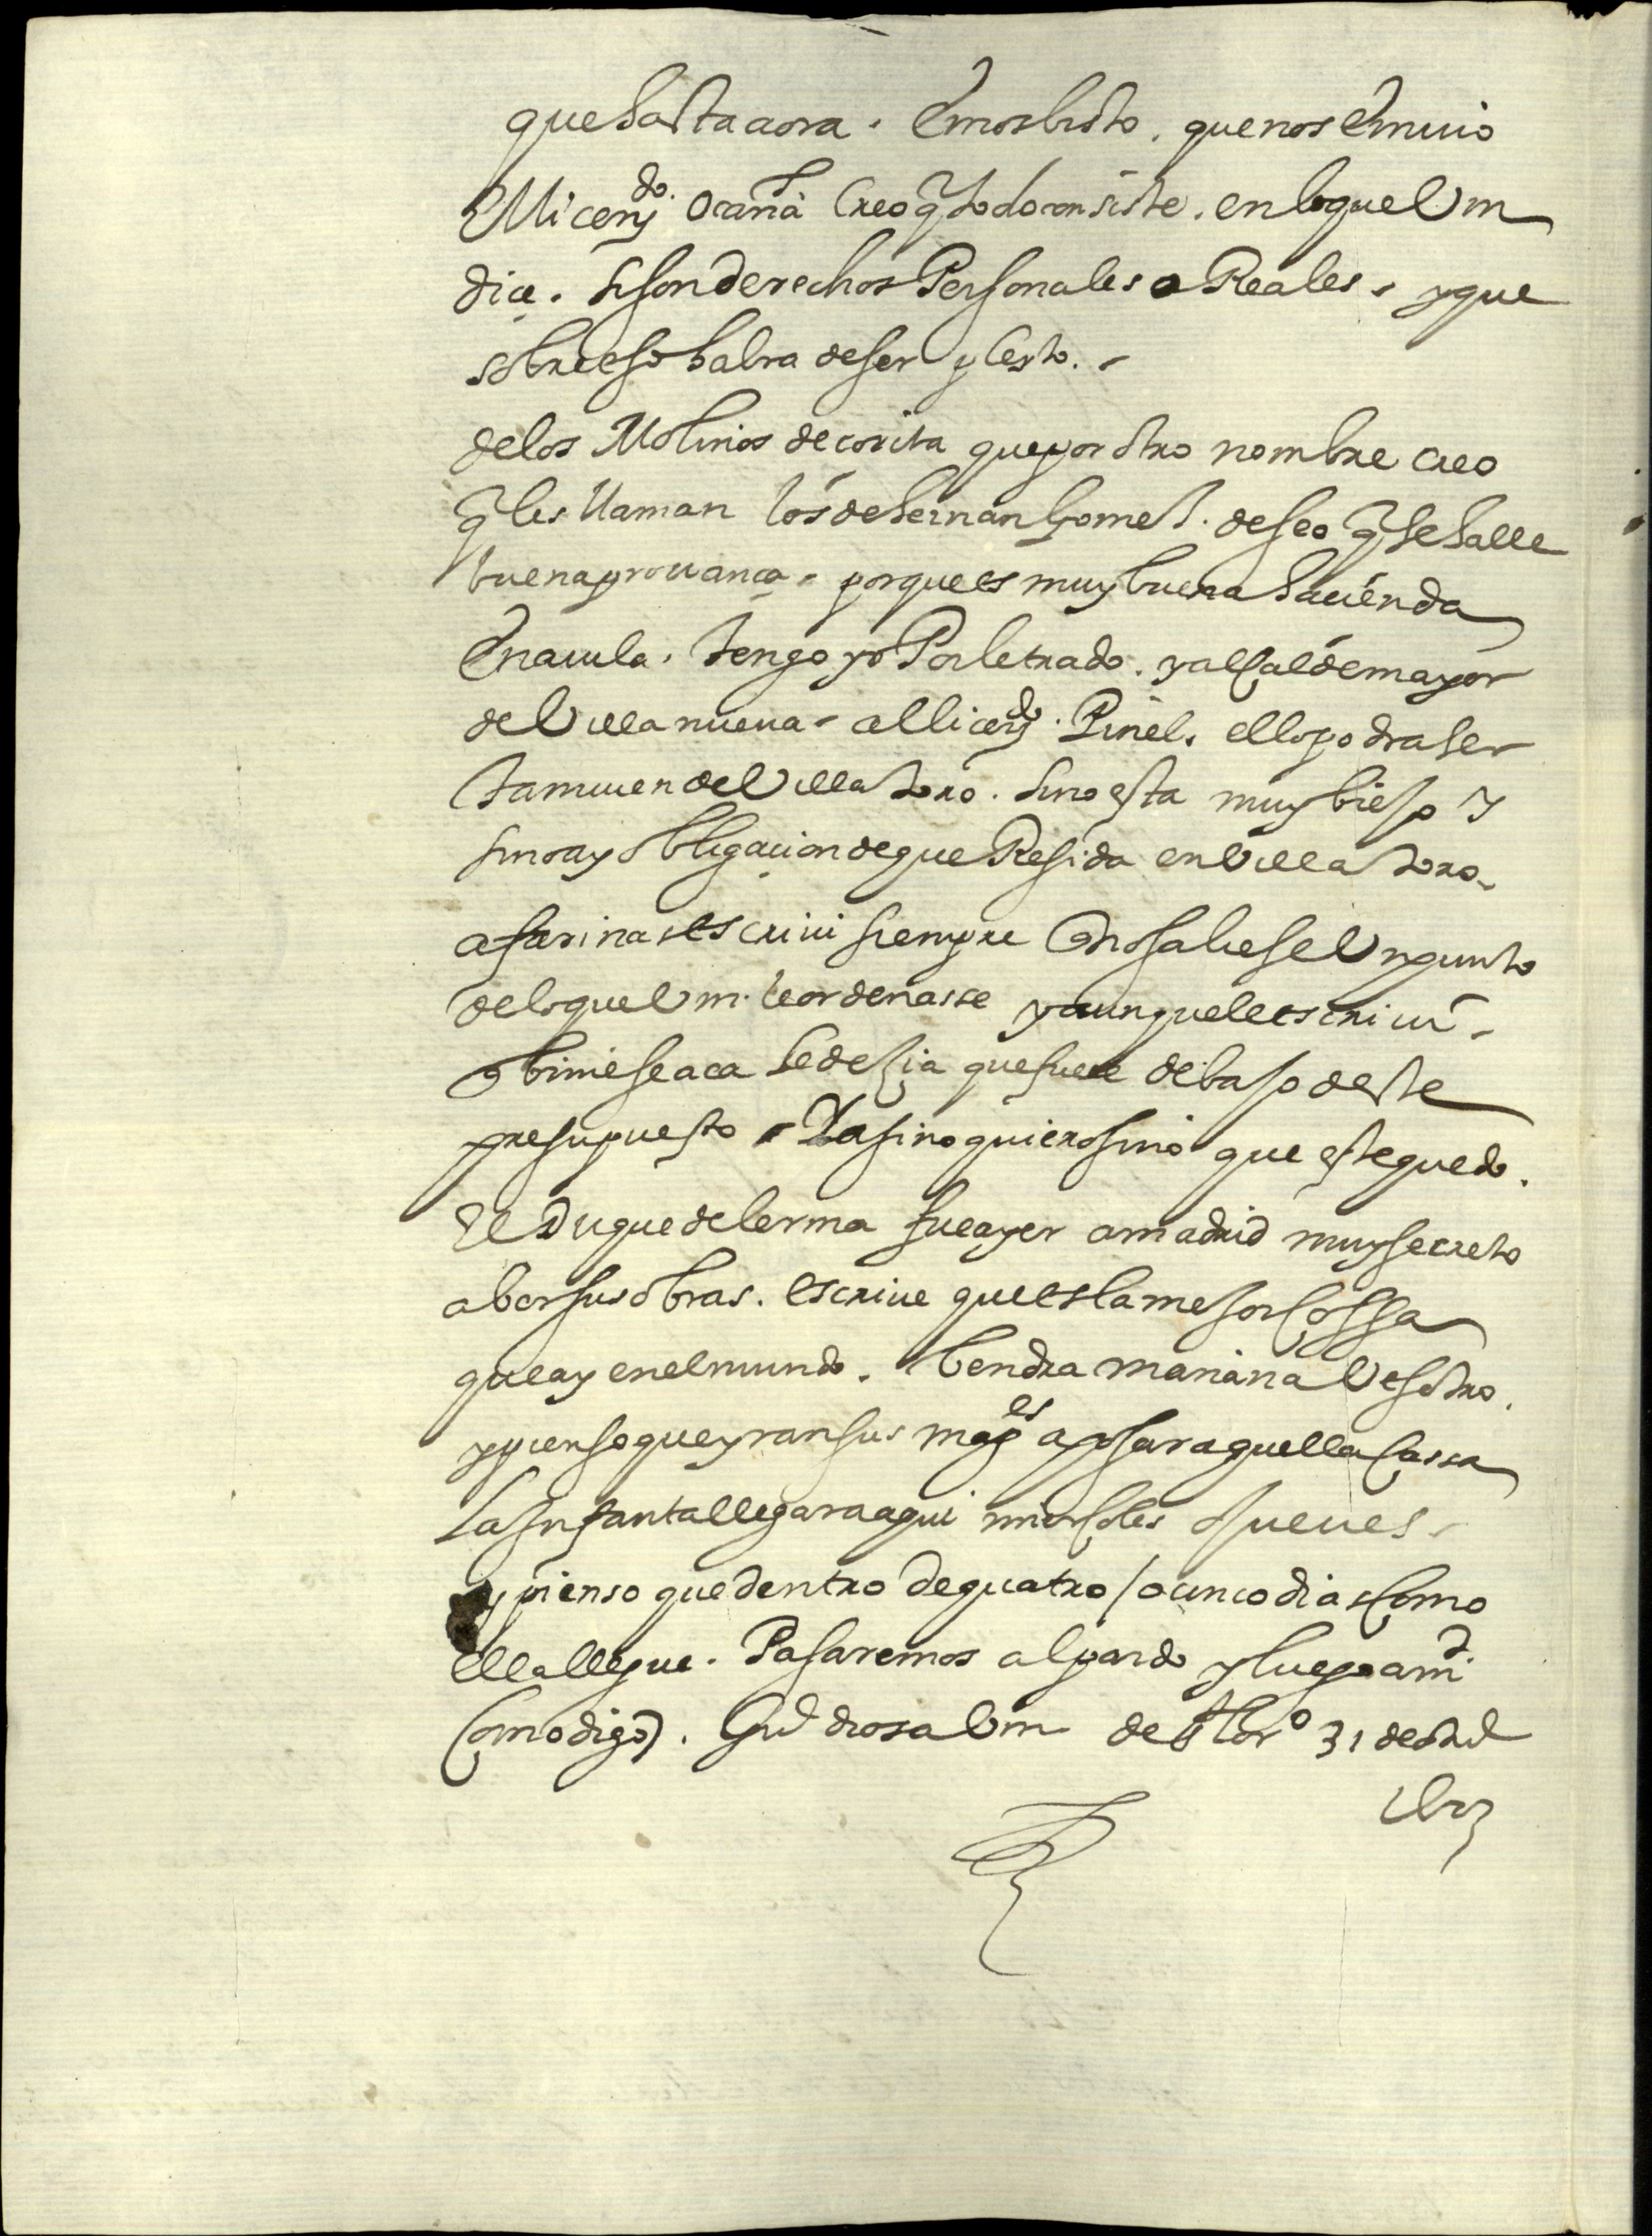 que hasta aora. Emos bisto. que nos embio
el licend.do ocaña Creo q todo consiste. en lo que Vm
dice. si son derechos Personales o Reales. y que
sobre eso habra de ser pleyto.
de los Molinos de corita que por otro nombre creo
q les llaman los de hernan Gomez. deseo q se halle
buena provança. porque es muy buena hacienda
En avila. tengo yo Por letrado. y alcalde mayor
de Villanueva. al licend.do Pinel. el lo podra ser
tambien de Villatoro. si no esta muy biejo y
si no ay obligacion de que Resida en Villatoro.
a farinas escrivi siempre q no saliese Un punto
de lo que Vm. le ordenasse y aunque le escrivi
q biniese aca le decia que fuese debajo deste
presupuesto. Y asi no quiero sino que este quedo.
El Duque de lerma fue ayer a madrid muy secreto
a ber sus obras. escrive que es la mejor cossa
que ay en el mundo. bendra mañana Vesotro.
y pienso que yran sus mag.es a posar aquella cassa
La Infanta llegara aqui miercoles o jueves.
y pienso que dentro de quatro / o cinco dias como
ella llegue. Pasaremos al pardo y luego a m.d
como digo). Gu.d dios a Vm de S Lor.o 31 de